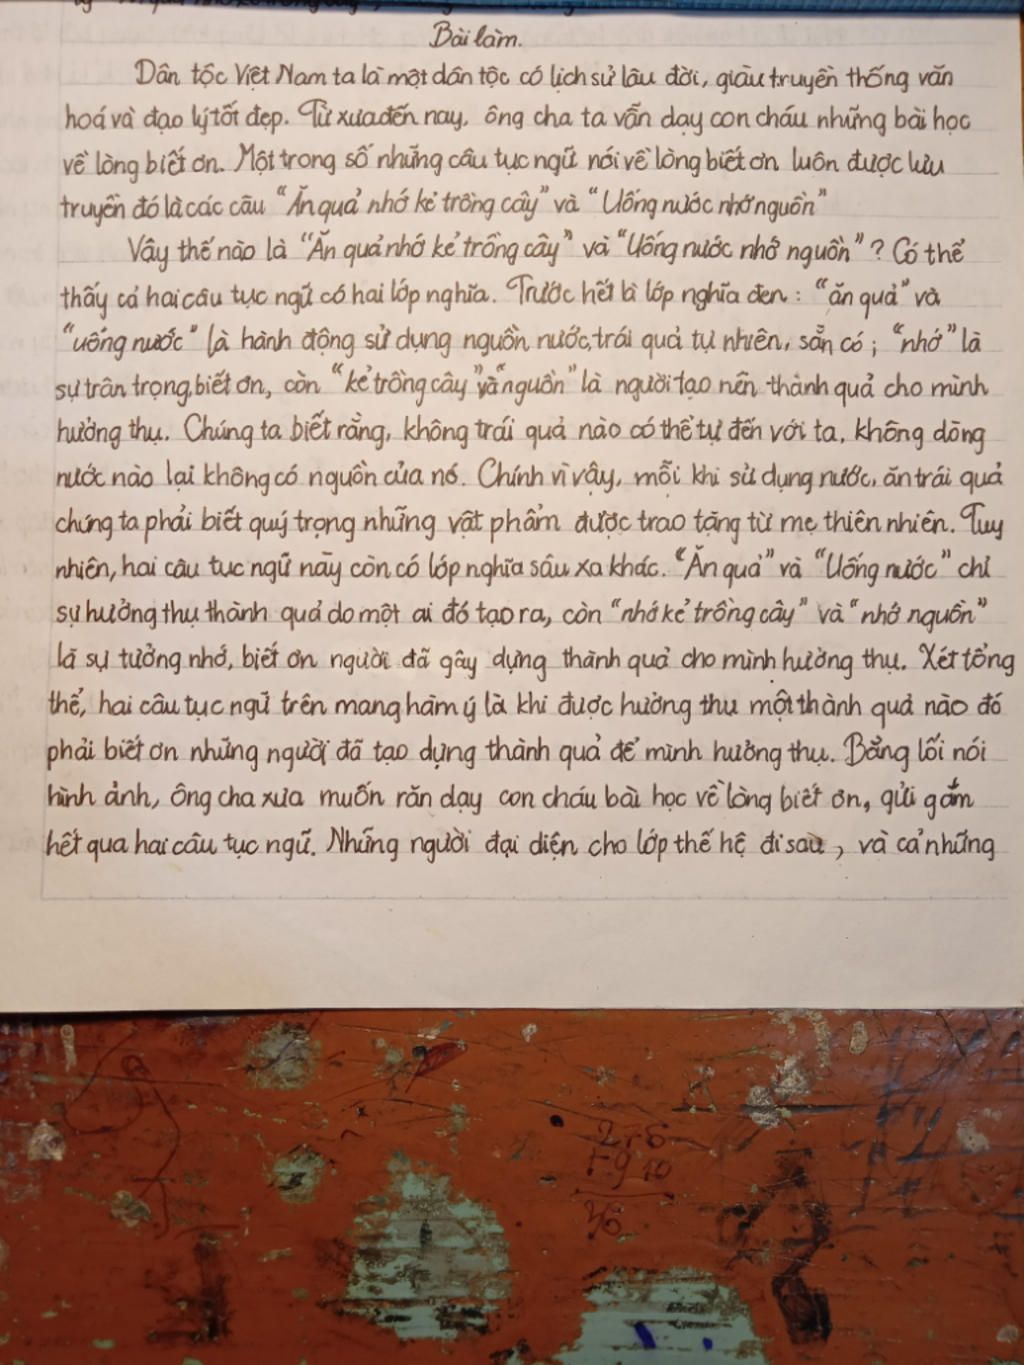 Bài làm.
Dân tộc Việt Nam ta là một dân tộc có lịch sử lâu đời, giàu truyền thống văn
hoá và đạo lý tốt đẹp. Từ xưa đến nay, ông cha ta vẫn dạy con cháu những bài học
về lòng biết ơn. Một trong số những câu tục ngữ nói về lòng biết ơn luôn được lưu
truyền đó là các câu "Ăn quả nhớ kẻ trồng cây" và "Uống nước nhớ nguồn"
Vậy thế nào là "Ăn quả nhớ kẻ trồng cây" và "Uống nước nhớ nguồn"? Có thể
thấy cả hai câu tục ngữ có hai lớp nghĩa. Trước hết là lớp nghĩa đen: "ăn quả" và
"uống nước" là hành động sử dụng nguồn nước, trái quả tự nhiên, sẵn có; "nhớ" là
sự trân trọng, biết ơn, còn "kẻ trồng cây" và "nguồn" là người tạo nên thành quả cho mình
hưởng thụ. Chúng ta biết rằng, không trái quả nào có thể tự đến với ta, không dòng
nước nào lại không có nguồn của nó. Chính vì vậy, mỗi khi sử dụng nước, ăn trái quả
chúng ta phải biết quý trọng những vật phẩm được trao tặng từ mẹ thiên nhiên. Tuy
nhiên, hai câu tục ngữ này còn có lớp nghĩa sâu xa khác. "Ăn quả" và "Uống nước" chỉ
sự hưởng thụ thành quả do một ai đó tạo ra, còn "nhớ kẻ trồng cây" và "nhớ nguồn"
là sự tưởng nhớ, biết ơn người đã gây dựng thành quả cho mình hưởng thụ. Xét tổng
thể, hai câu tục ngữ trên mang hàm ý là khi được hưởng thụ một thành quả nào đó
phải biết ơn những người đã tạo dựng thành quả để mình hưởng thụ. Bằng lối nói
hình ảnh, ông cha xưa muốn răn dạy con cháu bài học về lòng biết ơn, gửi gắm
hết qua hai câu tục ngữ. Những người đại diện cho lớp thế hệ đi sau, và cả những
276
36